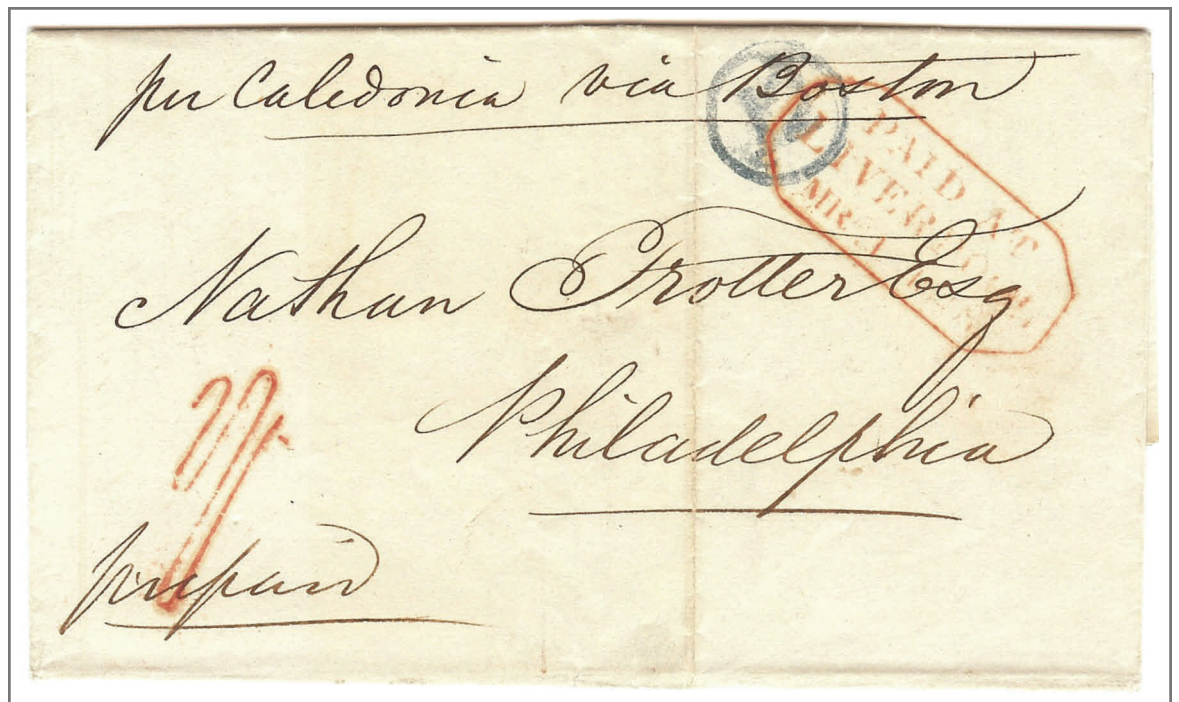 per Caledonia via Boston
PAID AT
LIVERPOOL
MR
Nathan Trotter Esq
Philadelphia
prepaid